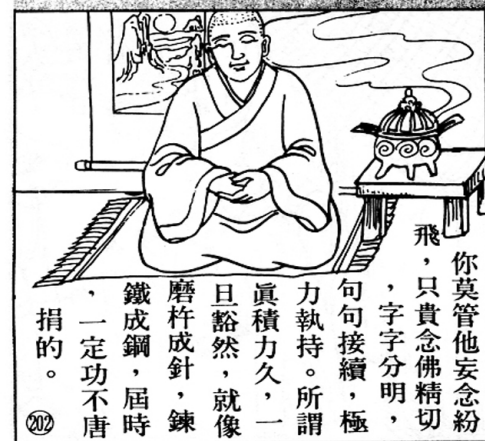 你莫管他妄念紛
飛，只貴念佛精切
，字字分明，
句句接續，極
力執持。所謂
眞積力久，一
旦豁然，就像
磨杵成針，鍊
鐵成鋼，屆時
，一定功不唐
捐的。
202